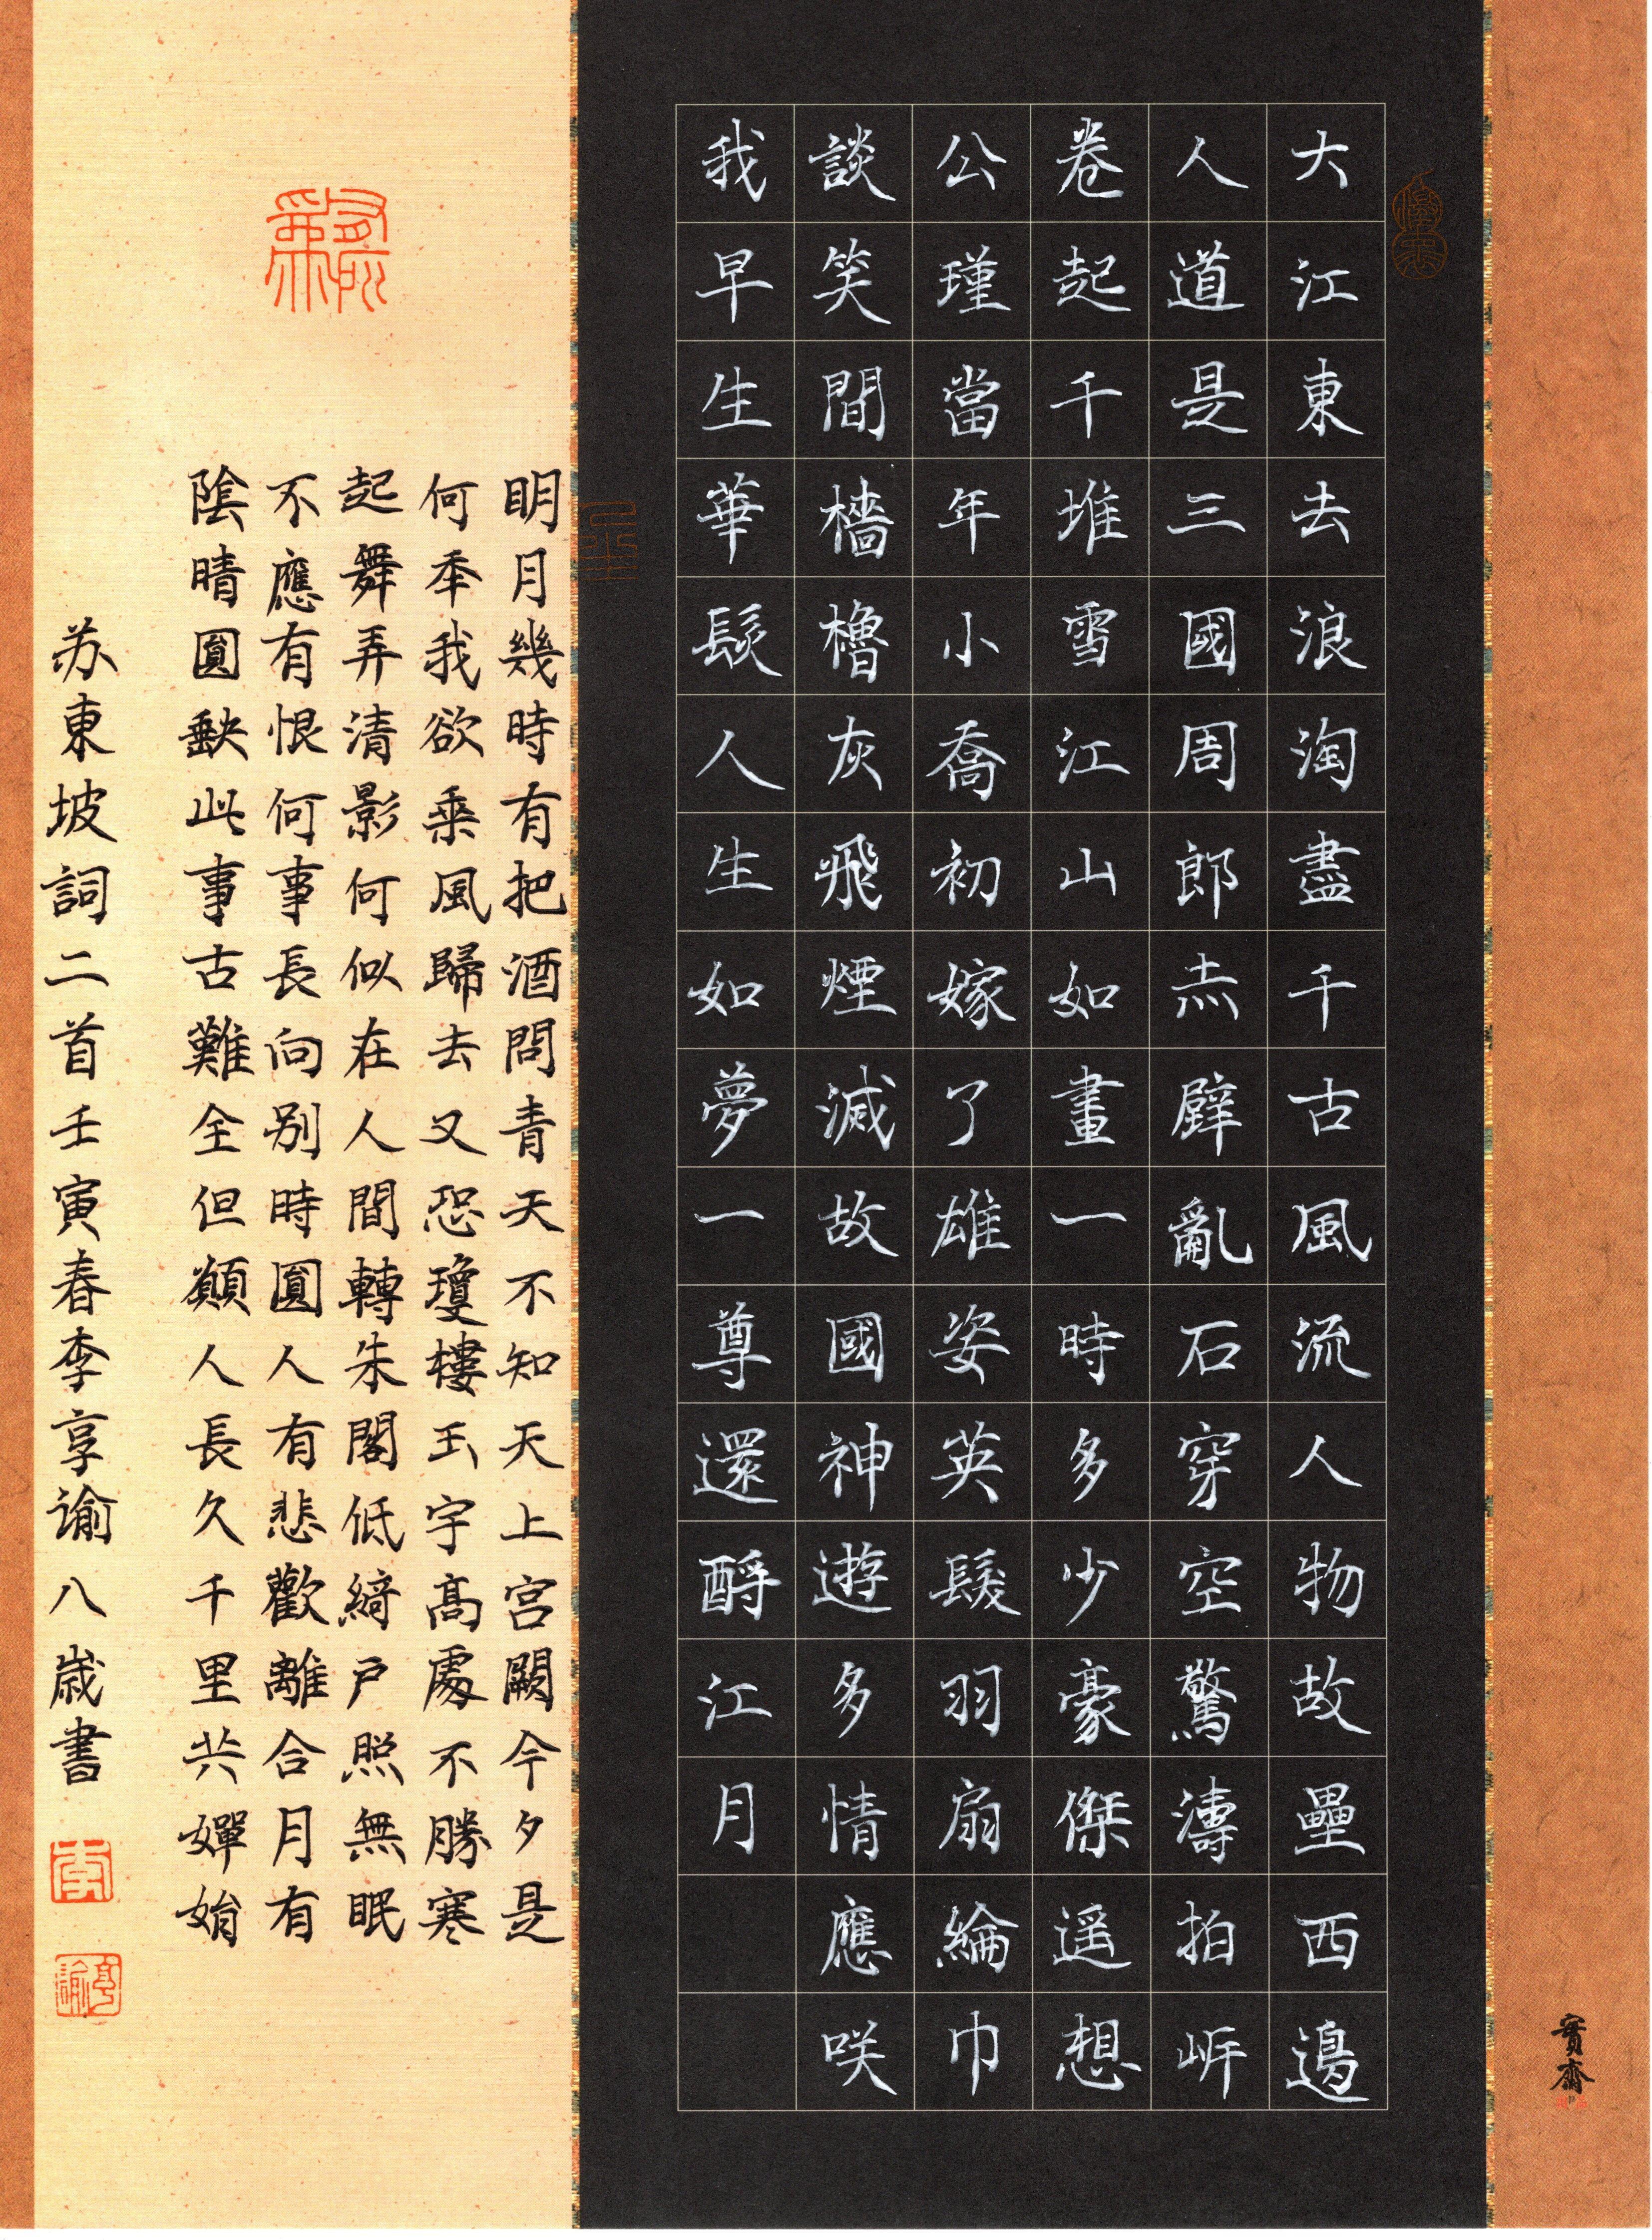 大江東去浪淘盡千古風流人物故壘西邊
人道是三國周郎赤壁亂石穿空驚濤拍岸
卷起千堆雪江山如畫一時多少豪傑遥想
公瑾當年小喬初嫁了雄姿英髮羽扇綸巾
談笑間檣櫓灰飛煙滅故國神遊多情應咲
我早生華髮人生如夢一尊還酹江月
明月幾時有把酒問青天不知天上宫闕今夕是
何年我欲乘風歸去又恐瓊樓玉宇高處不勝寒
起舞弄清影何似在人間轉朱閣低綺户照無眠
不應有恨何事長向别時圓人有悲歡離合月有
陰晴圓缺此事古難全但願人長久千里共嬋娟
苏東坡詞二首壬寅春李享谕八歲書